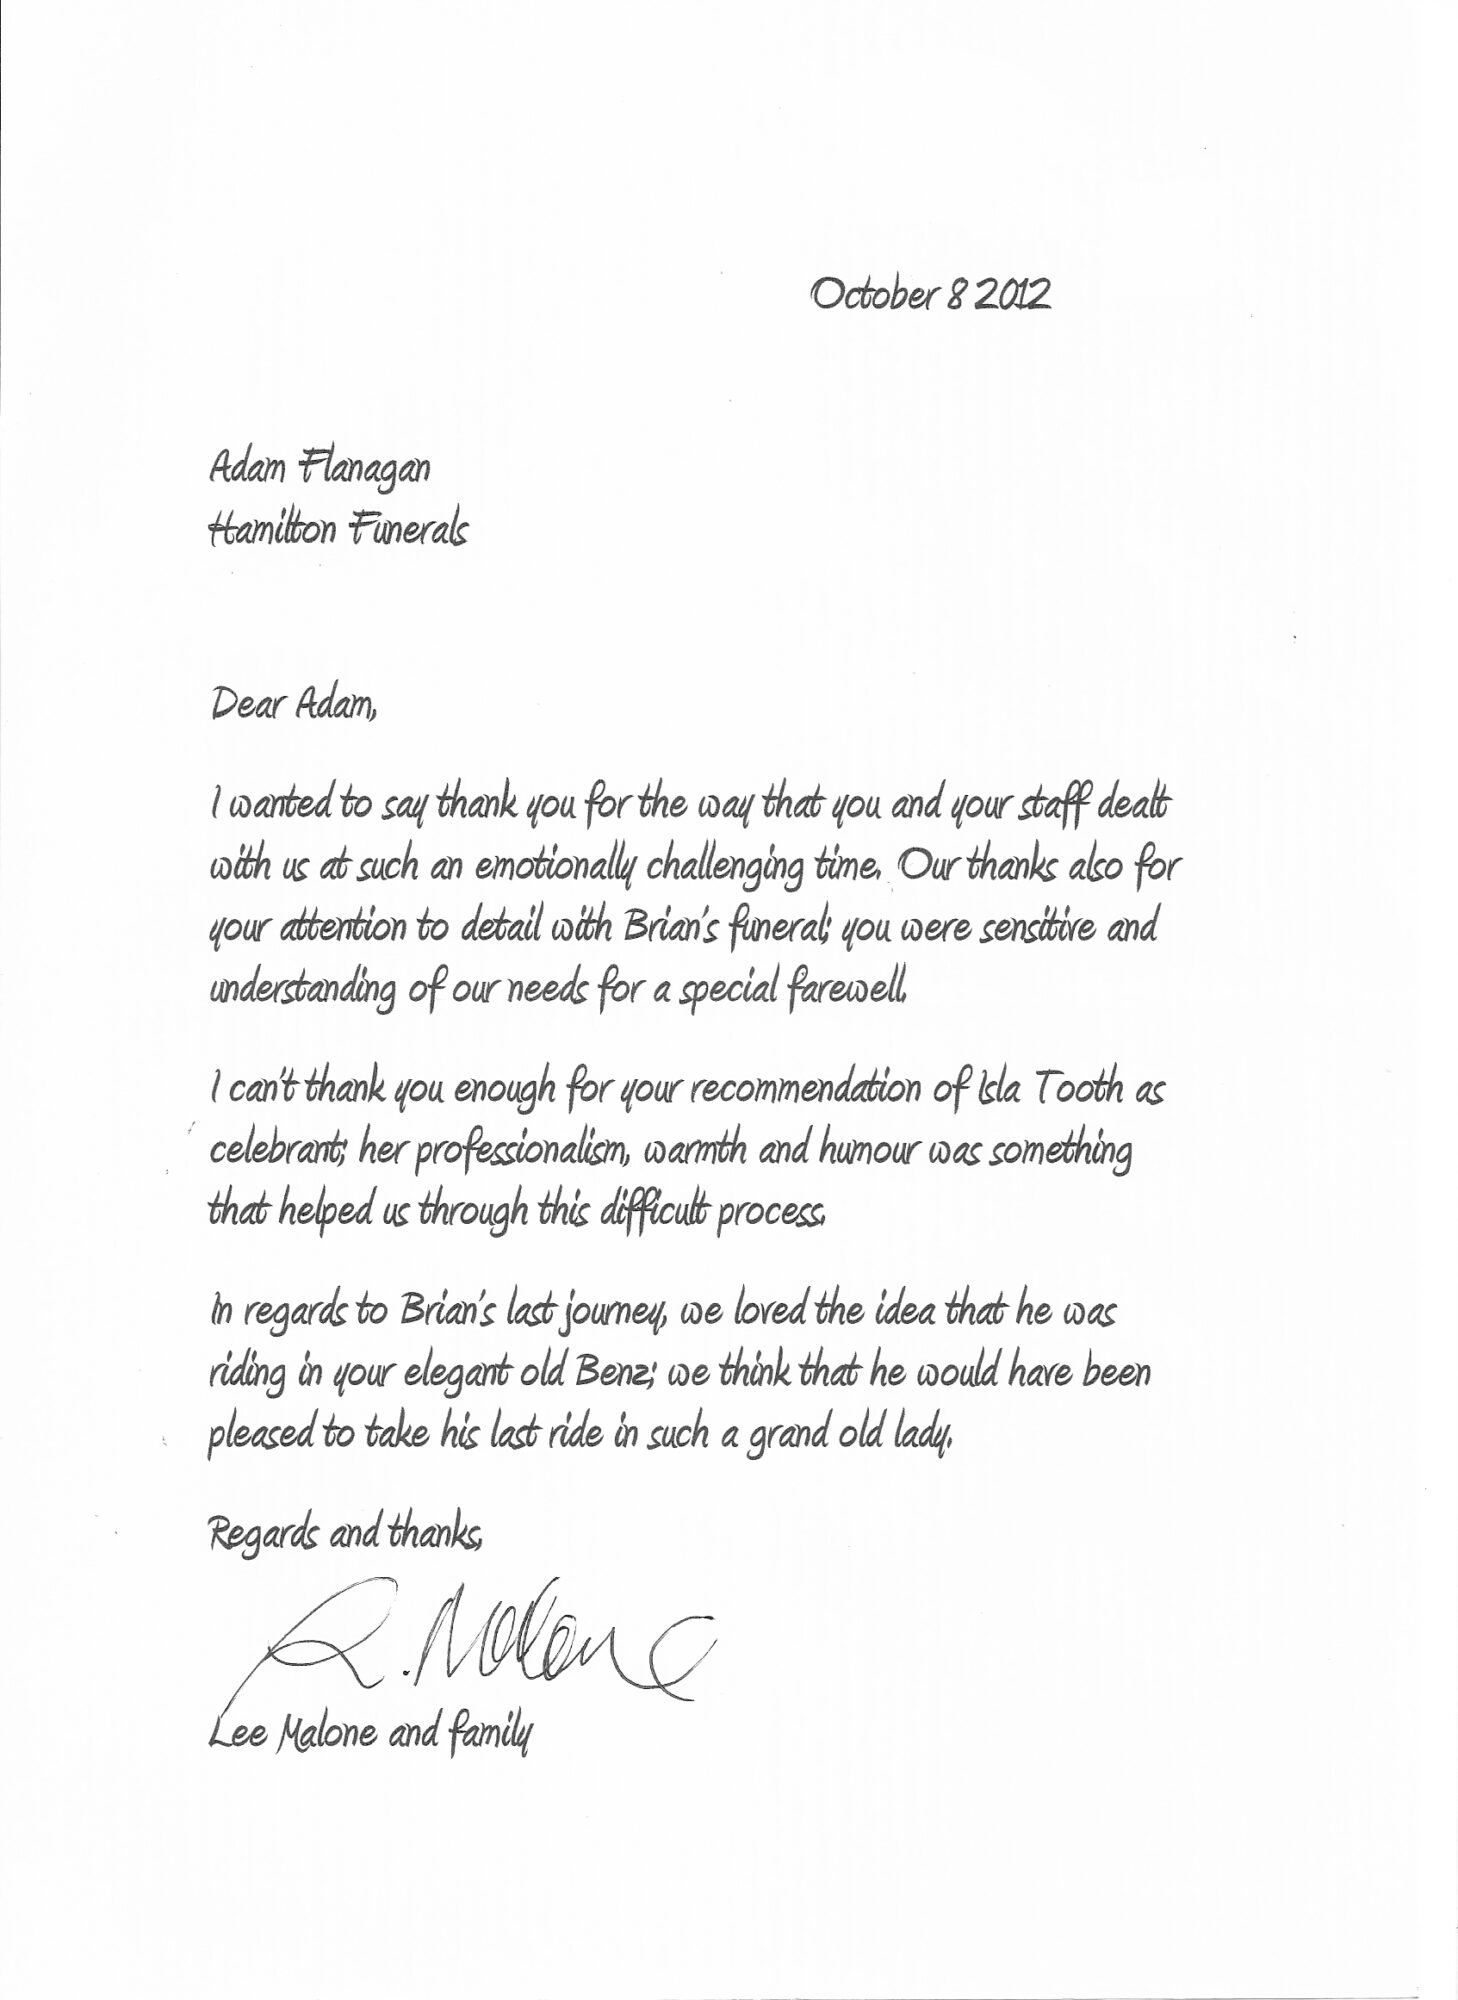 October 8 2012
Adam Flanagan
Hamilton Funerals
Dear Adam,
I wanted to say thank you for the way that you and your staff dealt
with us at such an emotionally challenging time. Our thanks also for
your attention to detail with Brian's funeral; you were sensitive and
understanding of our needs for a special farewell.
I can't thank you enough for your recommendation of Isla Tooth as
celebrant; her professionalism, warmth and humour was something
that helped us through this difficult process.
In regards to Brian's last journey, we loved the idea that he was
riding in your elegant old Benz; we think that he would have been
pleased to take his last ride in such a grand old lady.
Regards and thanks,
R. Malone
Lee Malone and family